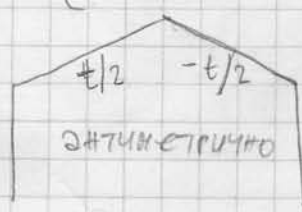 t/2 -t/2
АНТИМЕТРИЧНО